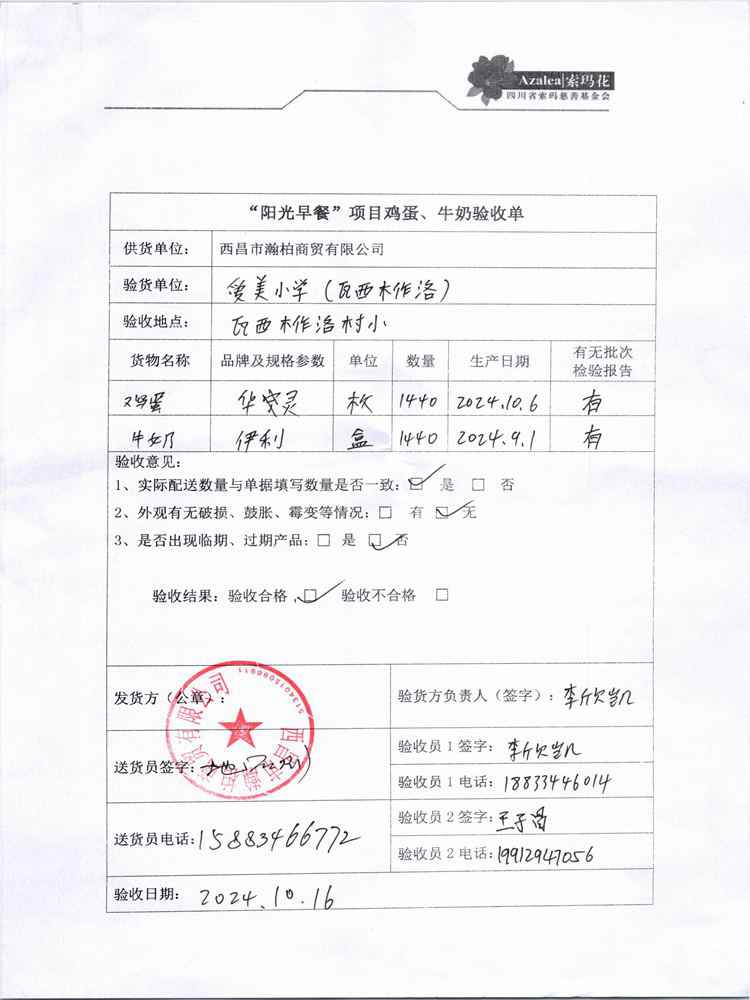 Azalea|索玛花
四川省索玛慈善基金会
“阳光早餐”项目鸡蛋、牛奶验收单
供货单位： 西昌市瀚柏商贸有限公司
验货单位： 爱美小学（瓦西木作洛）
验收地点： 瓦西木作洛村小
货物名称 品牌及规格参数 单位 数量 生产日期 有无批次检验报告
鸡蛋 华灵 枚 1440 2024.10.6 有
牛奶 伊利 盒 1440 2024.9.1 有
验收意见：
1、实际配送数量与单据填写数量是否一致：☑ 是 □ 否
2、外观有无破损、鼓胀、霉变等情况：□ 有 ☑ 无
3、是否出现临期、过期产品：□ 是 ☑ 否
验收结果：验收合格 ☑ 验收不合格 □
发货方（公章）：
西昌市瀚柏商贸有限公司
验货方负责人（签字）：李欣凯
送货员签字：
验收员1签字：李欣凯
验收员1电话：18833446014
送货员电话：15883466772
验收员2签字：王子
验收员2电话：19912947056
验收日期： 2024.10.16